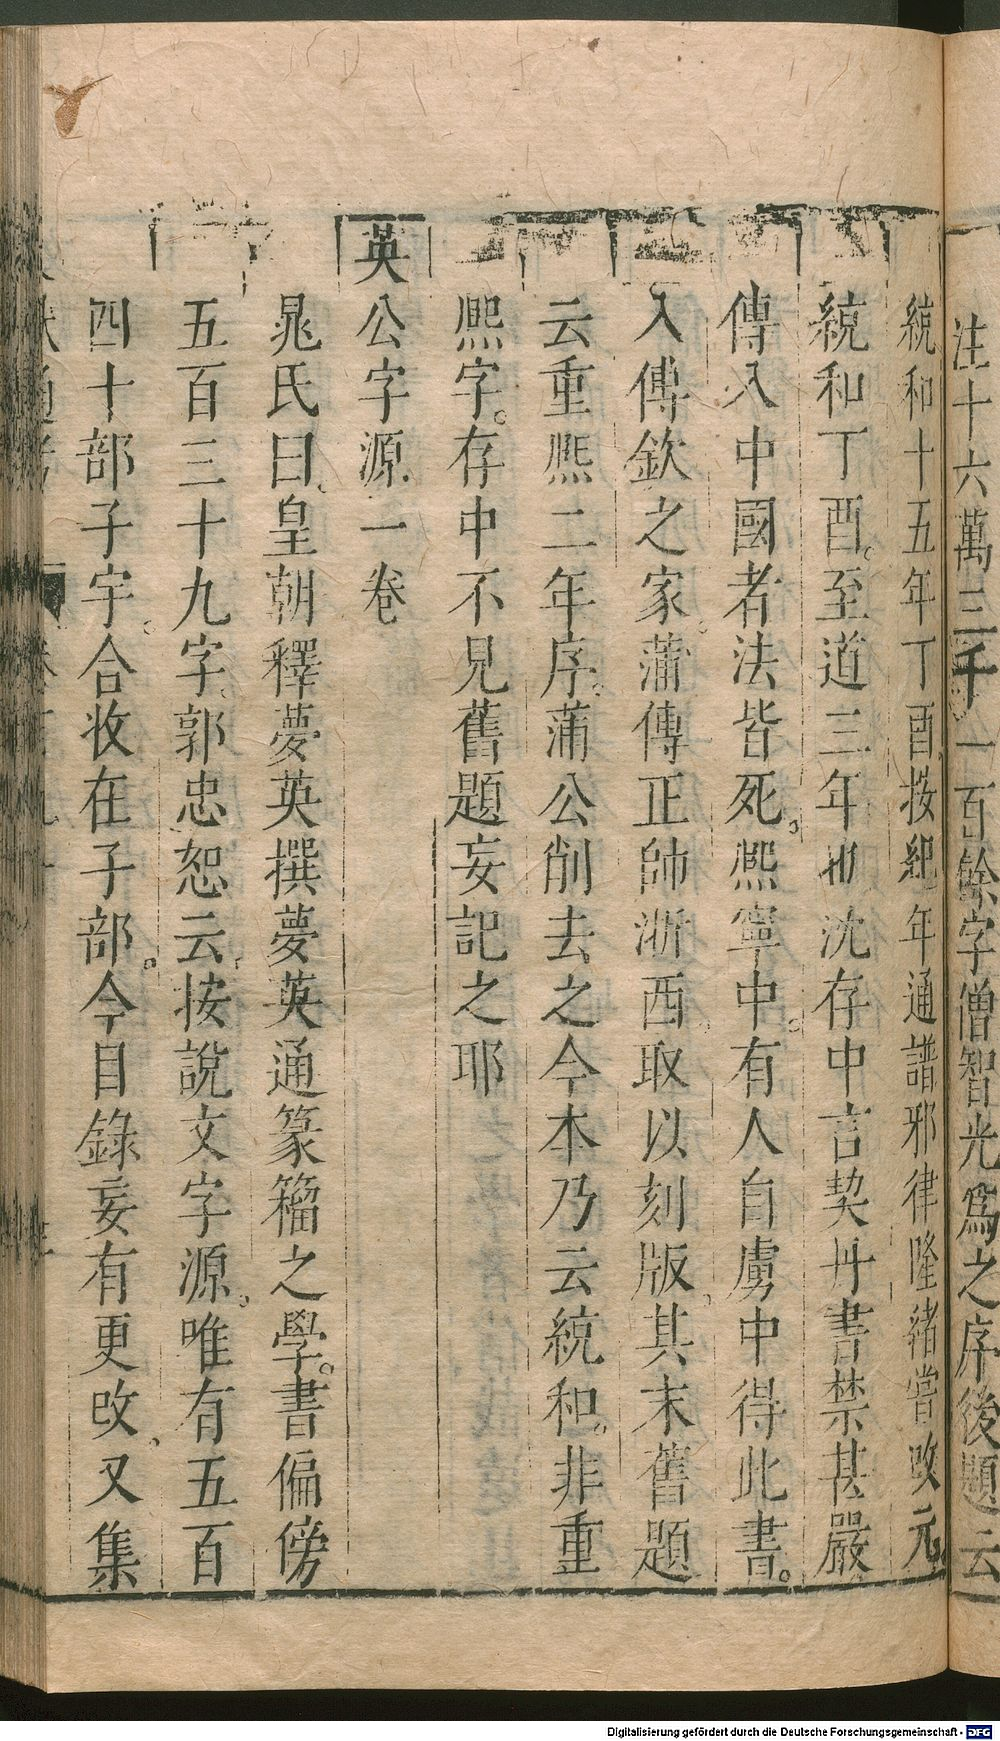 注十六萬三千一百餘字僧智光爲之序後題云
統和十五年丁酉按紀年通譜邪律隆緒嘗改元
統和丁酉。至道三年也沈存中言契丹書禁甚嚴
傳入中國者法皆死。熙寧中。有人自虜中得此書。
入傅欽之家。蒲傳正帥浙西取以刻版。其末舊題
云重熙二年序。蒲公削去之今本乃云統和。非重
熙字。存中不見舊題妄記之耶
英公字源一卷
晁氏曰皇朝釋夢英撰夢英通篆籀之學。書偏傍
五百三十九字郭忠恕云按說文字源。唯有五百
四十部子字。合收在子部。今目錄妄有更改、又集
Digitalisierung gefördert durch die Deutsche Forschungsgemeinschaft - DFG